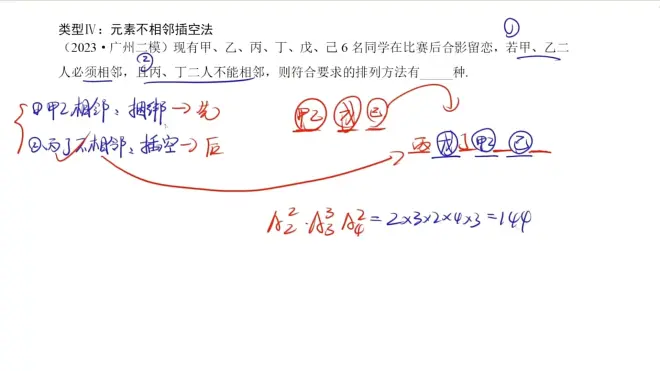 类型Ⅳ：元素不相邻插空法
①
（2023·广州二模）现有甲、乙、丙、丁、戊、己 6 名同学在比赛后合影留恋，若甲、乙二
②
人必须相邻，且丙、丁二人不能相邻，则符合要求的排列方法有_____种.
①甲乙相邻：捆绑→先
甲乙 戊 己
②丙丁不相邻：插空→后
丙 戊 丁 甲乙 己
A₂² · A₃³ A₄² = 2×3×2×4×3 = 144